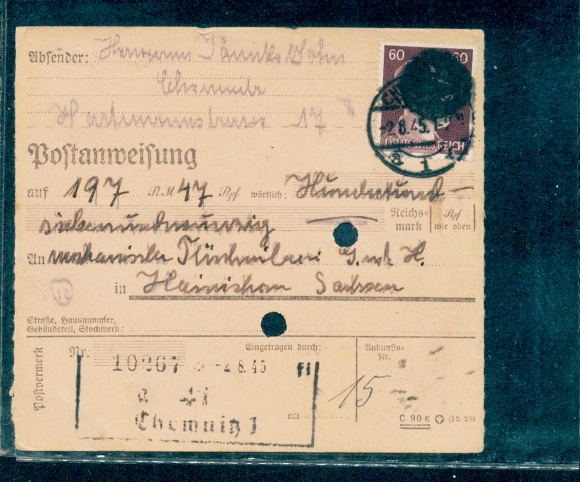 Absender: Hermann Jänicke Sohn
Chemnitz
Hartmannstrasse 17
60 60
DEUTSCHES REICH
-2.8.45.
a 1
Postanweisung
auf 197 RM 47 Rpf wörtlich: Hundertund-
siebenundneunzig
Reichs- Rpf
mark wie oben
An mechanische G.m.b.H.
in Hainichen Sachsen
Straße, Hausnummer,
Gebäudeteil, Stockwerk:
Postvermerk
Nr. Eingetragen durch: Ankunfts-
Nr.
10267 -2 8.45
a
Chemnitz 1
15
C 90 E